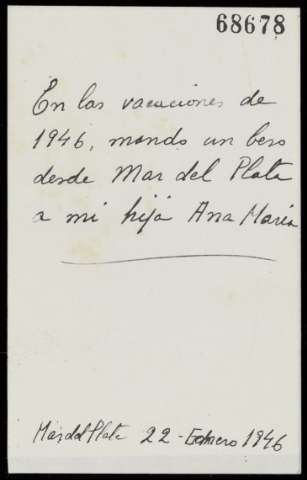 68678
En las vacaciones de
1946, mando un beso
desde Mar del Plata
a mi hija Ana María
Mar del Plata 22-Febrero 1946